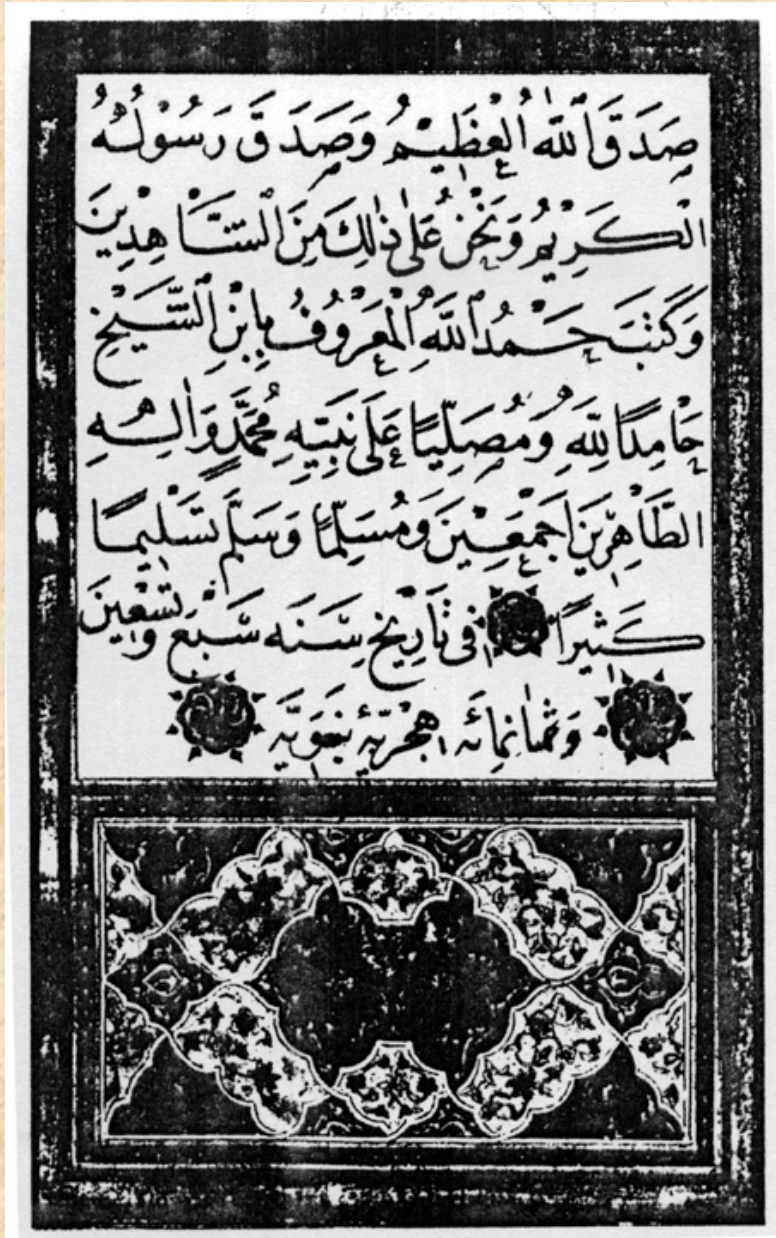 صَدَقَ ٱللّٰهُ الْعَظِيْمُ وَصَدَقَ رَسُوْلُهُ
الْكَرِيْمُ وَنَحْنُ عَلٰى ذٰلِكَ مِنَ الشَّاهِدِيْنَ
وَكَتَبَ حَمْدُ ٱللّٰهِ الْمَعْرُوْفُ بِابْنِ الشَّيْخِ
حَامِدًا لِلّٰهِ وَمُصَلِّيًا عَلَى نَبِيِّهِ مُحَمَّدٍ وَاٰلِهِ
الطَّاهِرِيْنَ اَجْمَعِيْنَ وَمُسَلِّمًا وَسَلَّمَ تَسْلِيْمًا
كَثِيْرًا فِى تَارِيْخِ سَنَه سَبْعٍ وَتِسْعِيْنَ
وَثَمَانِمِائَه هِجْرِيَّة نَبَوِيَّه